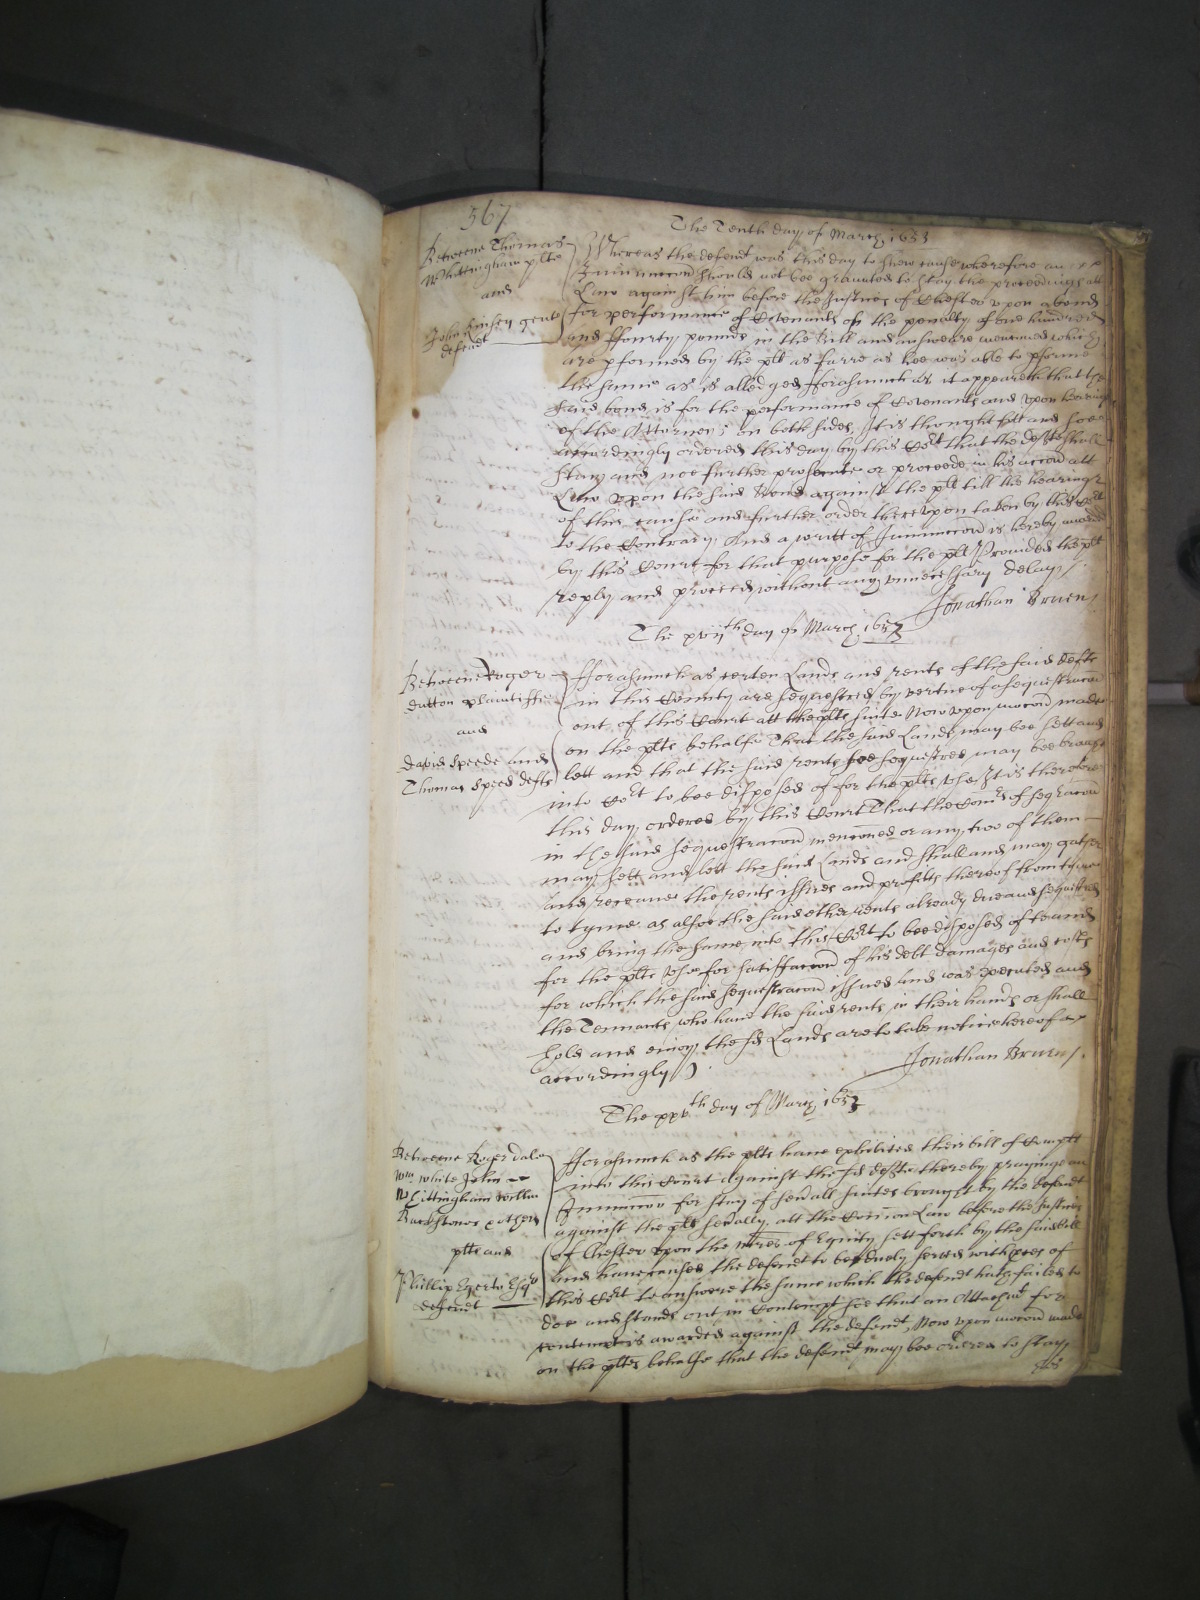 567
The Tenth day of March 1653
Betweene Thomas
Whittingham plte
and
John Kinsey gent
defendt
Whereas the defendt was this day to shew cause wherefore an
Iniunccon should not bee graunted to stay the proceedings att
Law against him before the Justices of Chester upon a bond
for performance of Covenants of the penalty of one hundred
and ffourty pounds in the bill and answeare menconed which
are pformed by the plt as farre as hee was able to pforme
the same as is alledged fforasmuch as it appeareth that the
said bond is for the performance of Covenants and upon hearing
of the Attorneys on both sides, It is thought fitt and soe
accordingly ordered this day by this Cort that the defte shall
stay and noe further prosecute or proceede in his accon att
Law upon the said Bond against the plt till the hearinge
of this cause and further order thereupon taken by this Cort
to the Contrary, And a writt of Iniunccon is hereby awarded
by this Court for that purpose for the plt Provided the plt
reply and proceed without any unnecessary delay /
Jonathan Bruen /
The xviith day of March 1653
Betweene Roger
dutton plaintiffe
and
David Speede and
Thomas Speed defts
fforasmuch as certen Lands and rents of the said defts
in this County are sequestred by vertue of a sequestracon
out of this Court att the plts suite Now upon mocon made
on the plts behalfe That the said Lands may bee sett and
lett and that the said rents soe sequestred may bee brought
into Cort to bee disposed of for the plts use, It is therefore
this day ordered by this Court That the Comrs of seqracon
in the said sequestracon menconed or any two of them
may sett and lett the said Lands and shall and may gather
and receave the rents issues and profitts thereof from tyme
to tyme as alsoe the said other rents already due and sequestred
and bring the same into this Cort to bee disposed of to and
for the plts use for satisfaccon of his debt damages and costs
for which the said sequestracon issued and was executed and
the Tennants who have the said rents in their hands or shall
hold and enioy the sd Lands are to take notice hereof
accordingly )
Jonathan Bruen /
The xxvth day of March 1653
Betweene Roger dale
Wm White John
Whittingham Willm
Barkstonos x others
plts and
Phillip Egerto Esqr
defendt
fforasmuch as the plts have exhibited their bill of Complt
into this Court against the sd defte thereby prayinge an
Iniunccon for stay of sevall suites brought by the defendt
against the plts sevally, att the Comon Law before the Justices
of Chester upon the mres of Equity sett forth by the said bill
And have caused the defendt to bee duely served with pces of
this Cort to answere the same which the defendt hath failed to
doe and stands out in Contempt soe that an Attachmt for
contempt is awarded against the defendt, Now upon mocon made
on the plts behalfe that the defendt may bee ordered to stay